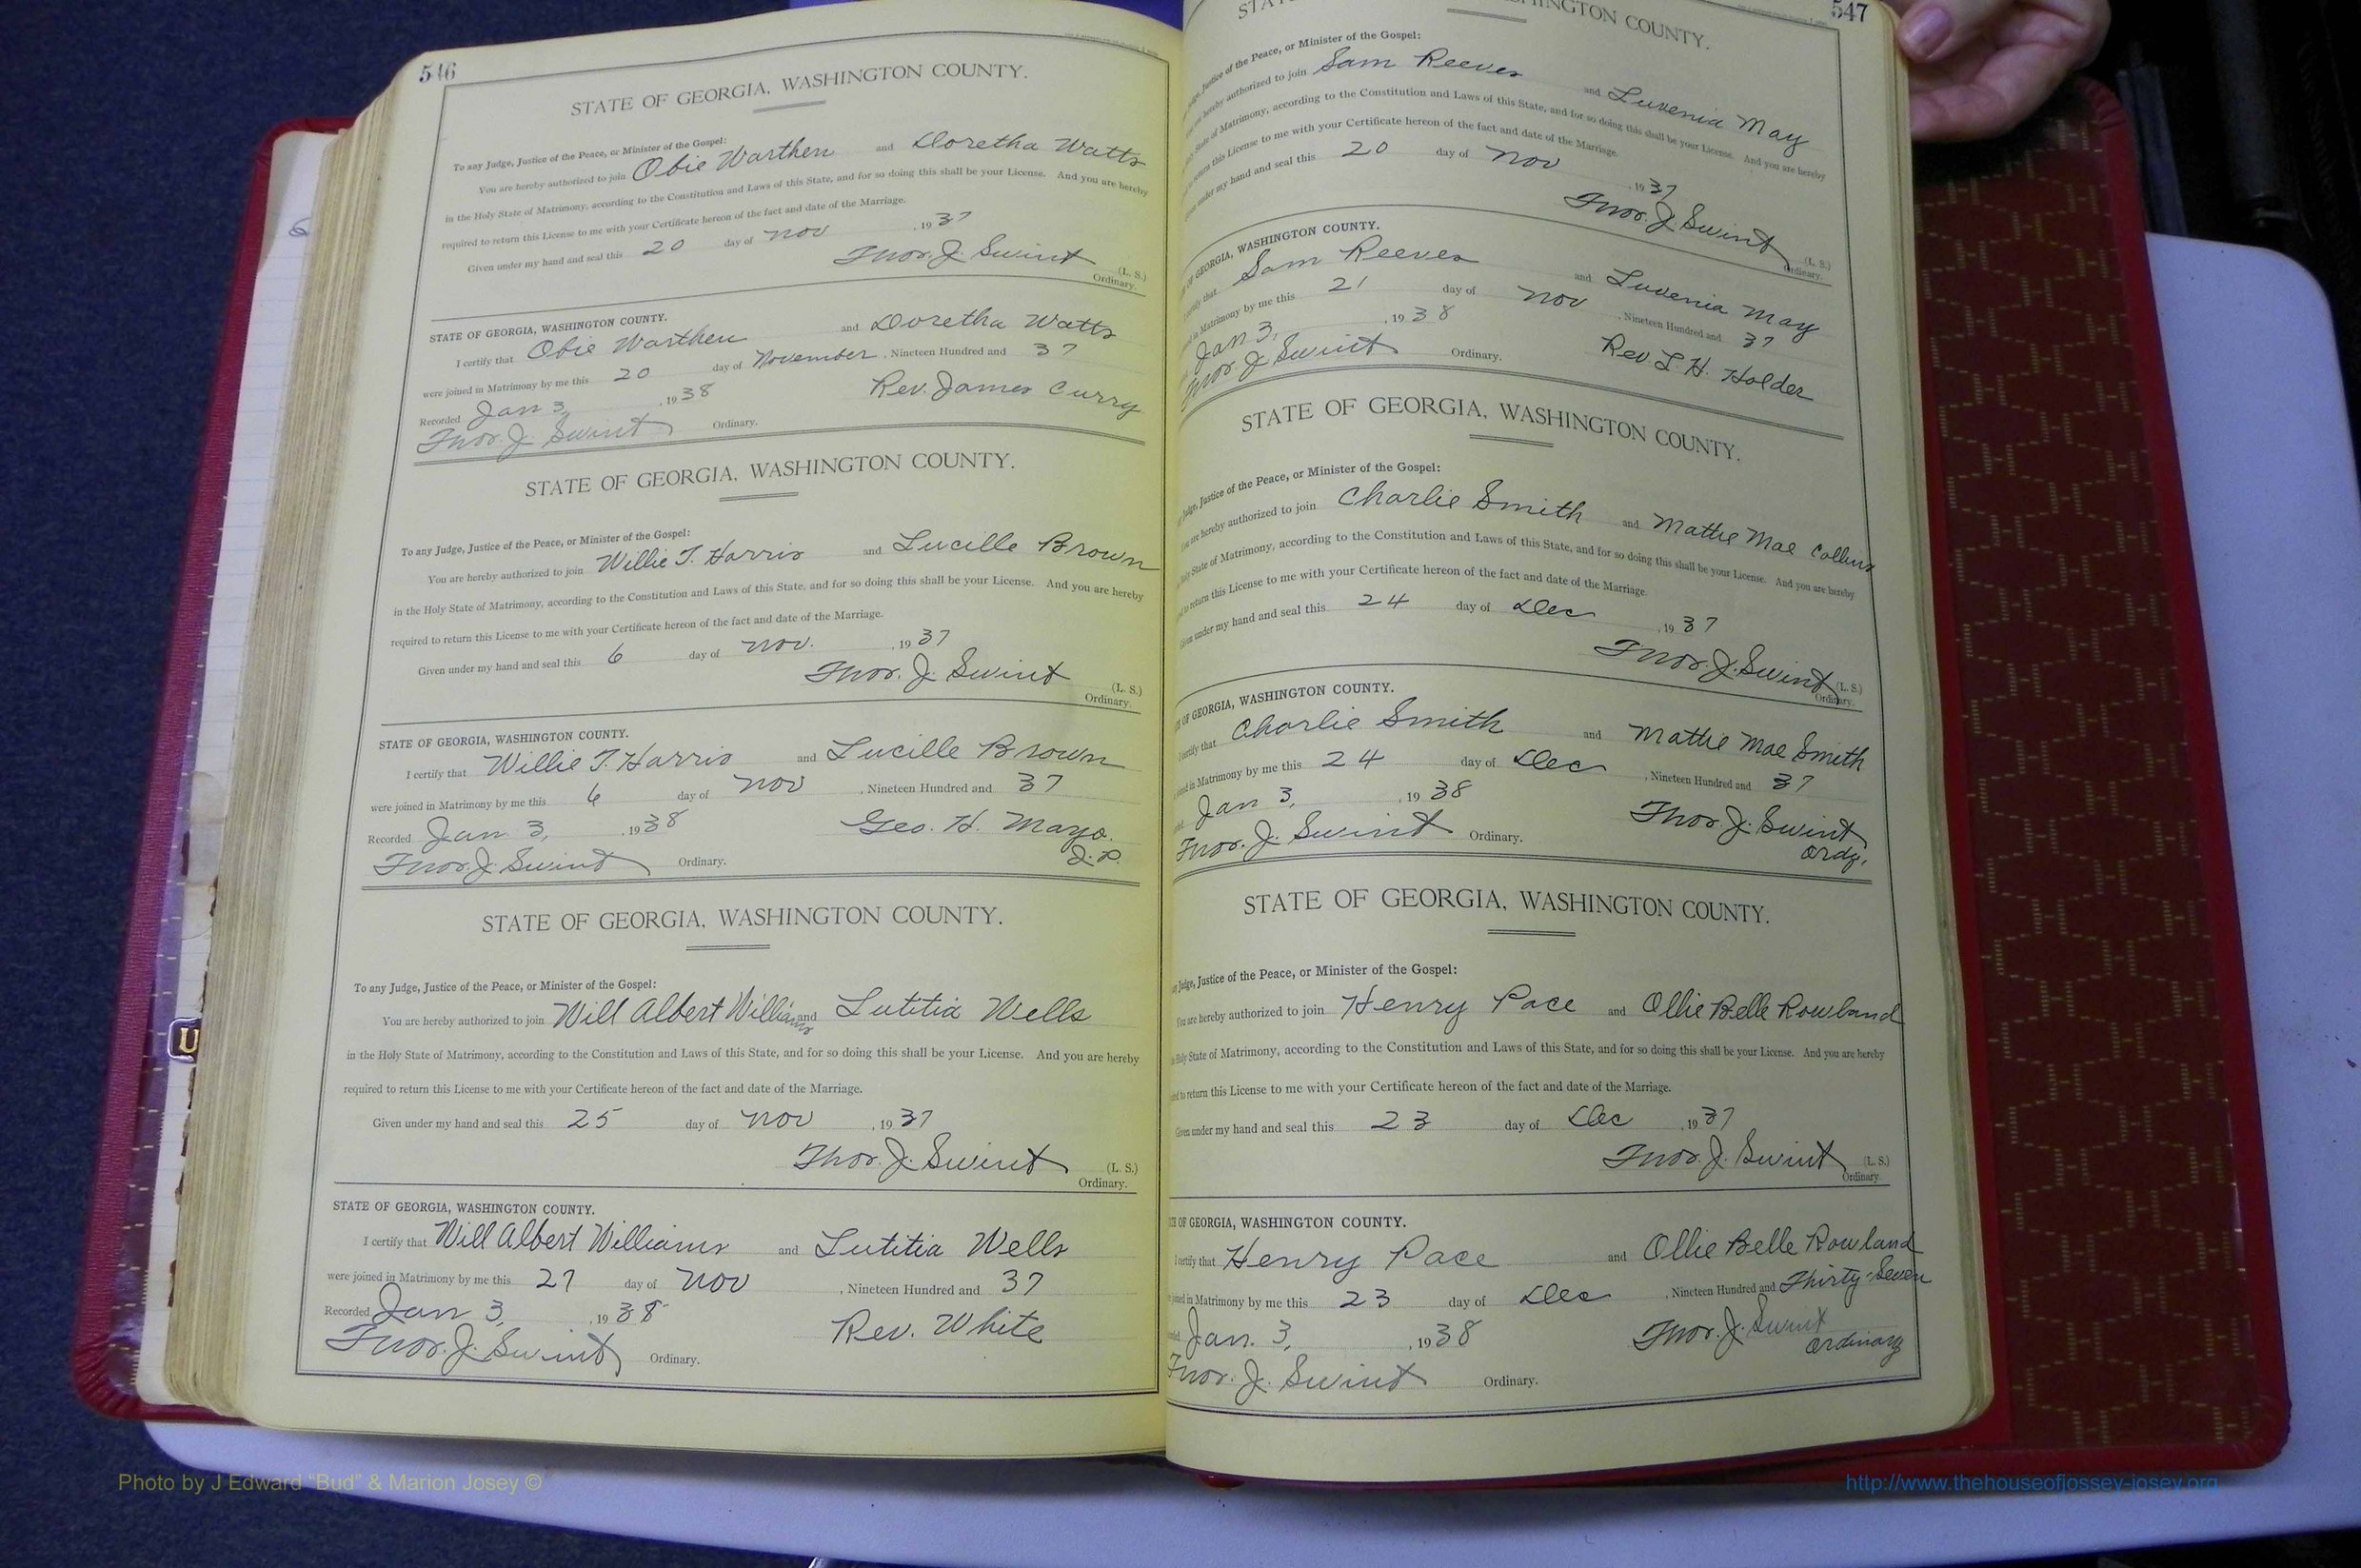 546
STATE OF GEORGIA, WASHINGTON COUNTY.
To any Judge, Justice of the Peace, or Minister of the Gospel:
You are hereby authorized to join Obie Warthen and Doretha Watts
in the Holy State of Matrimony, according to the Constitution and Laws of this State, and for so doing this shall be your License. And you are hereby
required to return this License to me with your Certificate hereon of the fact and date of the Marriage.
Given under my hand and seal this 20 day of Nov , 1937
Thos. J. Swint (L. S.)
Ordinary.
STATE OF GEORGIA, WASHINGTON COUNTY.
I certify that Obie Warthen and Doretha Watts
were joined in Matrimony by me this 20 day of November , Nineteen Hundred and 37
Recorded Jan 3, , 1938 Rev. James Curry
Thos. J. Swint Ordinary.
STATE OF GEORGIA, WASHINGTON COUNTY.
To any Judge, Justice of the Peace, or Minister of the Gospel:
You are hereby authorized to join Willie T. Harris and Lucille Brown
in the Holy State of Matrimony, according to the Constitution and Laws of this State, and for so doing this shall be your License. And you are hereby
required to return this License to me with your Certificate hereon of the fact and date of the Marriage.
Given under my hand and seal this 6 day of Nov. , 1937
Thos. J. Swint (L. S.)
Ordinary.
STATE OF GEORGIA, WASHINGTON COUNTY.
I certify that Willie T. Harris and Lucille Brown
were joined in Matrimony by me this 6 day of Nov , Nineteen Hundred and 37
Recorded Jan. 3, , 1938 Geo. H. Mayo.
J. P.
Thos. J. Swint Ordinary.
STATE OF GEORGIA, WASHINGTON COUNTY.
To any Judge, Justice of the Peace, or Minister of the Gospel:
You are hereby authorized to join Will Albert Williams and Lutitia Wells
in the Holy State of Matrimony, according to the Constitution and Laws of this State, and for so doing this shall be your License. And you are hereby
required to return this License to me with your Certificate hereon of the fact and date of the Marriage.
Given under my hand and seal this 25 day of Nov , 1937
Thos. J. Swint (L. S.)
Ordinary.
STATE OF GEORGIA, WASHINGTON COUNTY.
I certify that Will Albert Williams and Lutitia Wells
were joined in Matrimony by me this 27 day of Nov , Nineteen Hundred and 37
Recorded Jan 3, , 1938 Rev. White
Thos. J. Swint Ordinary.
547
WASHINGTON COUNTY.
Judge, Justice of the Peace, or Minister of the Gospel:
You are hereby authorized to join Sam Reeves and Luvenia May
Holy State of Matrimony, according to the Constitution and Laws of this State, and for so doing this shall be your License. And you are hereby
to return this License to me with your Certificate hereon of the fact and date of the Marriage.
Given under my hand and seal this 20 day of Nov , 1937
Thos. J. Swint (L. S.)
Ordinary.
OF GEORGIA, WASHINGTON COUNTY.
certify that Sam Reeves and Luvenia May
in Matrimony by me this 21 day of Nov , Nineteen Hundred and 37
Jan 3, , 1938 Rev. L. H. Holder
Thos. J. Swint Ordinary.
STATE OF GEORGIA, WASHINGTON COUNTY.
Judge, Justice of the Peace, or Minister of the Gospel:
You are hereby authorized to join Charlie Smith and Mattie Mae Collins
Holy State of Matrimony, according to the Constitution and Laws of this State, and for so doing this shall be your License. And you are hereby
to return this License to me with your Certificate hereon of the fact and date of the Marriage.
Given under my hand and seal this 24 day of Dec , 1937
Thos. J. Swint (L. S.)
Ordinary.
OF GEORGIA, WASHINGTON COUNTY.
I certify that Charlie Smith and Mattie Mae Smith
joined in Matrimony by me this 24 day of Dec , Nineteen Hundred and 37
Jan 3, , 1938 Thos J. Swint
Ordy.
Thos. J. Swint Ordinary.
STATE OF GEORGIA, WASHINGTON COUNTY.
Judge, Justice of the Peace, or Minister of the Gospel:
You are hereby authorized to join Henry Pace and Ollie Belle Rowland
Holy State of Matrimony, according to the Constitution and Laws of this State, and for so doing this shall be your License. And you are hereby
to return this License to me with your Certificate hereon of the fact and date of the Marriage.
Given under my hand and seal this 23 day of Dec , 1937
Thos. J. Swint (L. S.)
Ordinary.
OF GEORGIA, WASHINGTON COUNTY.
I certify that Henry Pace and Ollie Belle Rowland
joined in Matrimony by me this 23 day of Dec , Nineteen Hundred and Thirty-Seven
Jan. 3, , 1938 Thos. J. Swint
Ordinary
Thos. J. Swint Ordinary.
U
Photo by J Edward “Bud” & Marion Josey ©
http://www.thehouseofjossey-josey.org